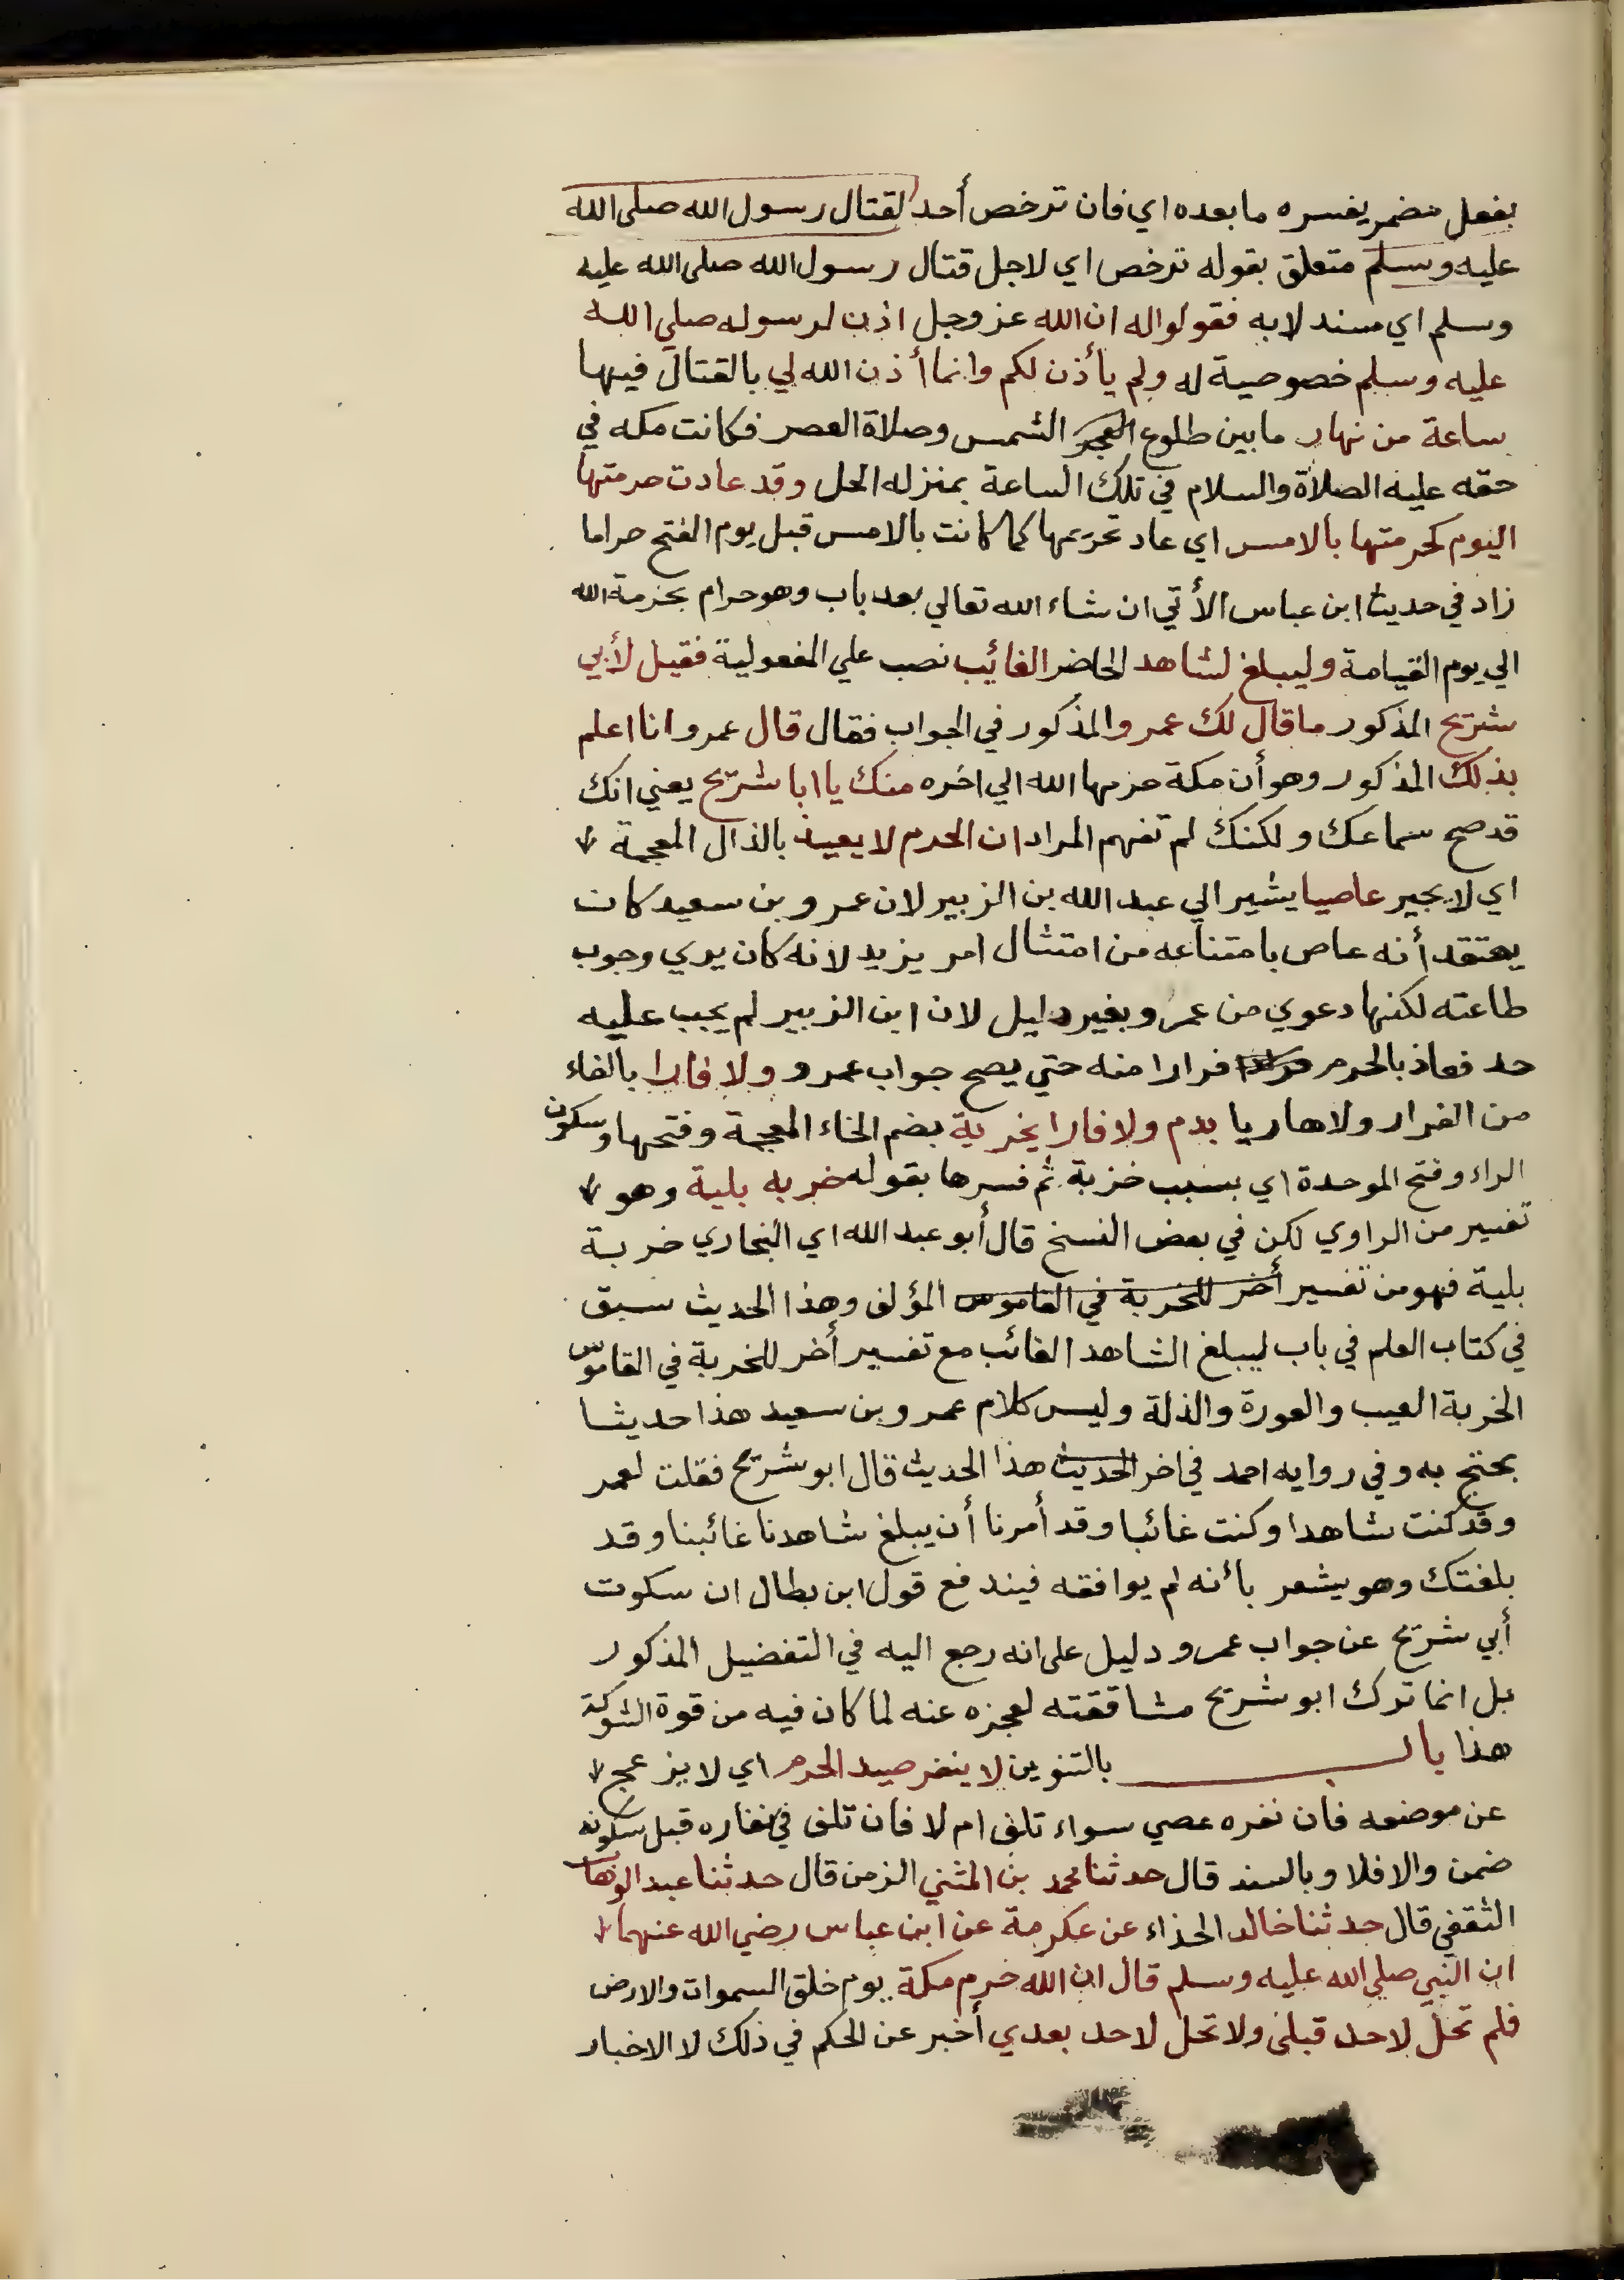 بفعل مضمر يفسره ما بعده اي فان ترخص أحد لقتال رسول الله صلى الله
عليه وسلم متعلق بقوله ترخص اي لاجل قتال رسول الله صلى الله عليه
وسلم اي مستدلا به فقولوا له ان الله عز وجل اذن لرسوله صلي الله
عليه وسلم خصوصية له ولم يأذن لكم وانما أذن الله لي بالقتال فيها
ساعة من نهار ما بين طلوع الفجر الشمس وصلاة العصر فكانت مكه في
حقه عليه الصلاة والسلام في تلك الساعة بمنزله الحل وقد عادت حرمتها
اليوم كحرمتها بالامس اي عاد تحريمها كما كانت بالامس قبل يوم الفتح حراما
زاد في حديث ابن عباس الأتي ان شاء الله تعالي بعد باب وهو حرام بحرمة الله
الي يوم القيامة وليبلغ لشاهد الحاضر الغائب نصب علي المفعولية فقيل لأبي
شريح المذكور ما قال لك عمرو المذكور في الجواب فقال قال عمرو انا اعلم
بذلك المذكور وهو أن مكة حرمها الله الي اخره منك يا ابا شريح يعني انك
قد صح سماعك ولكنك لم تفهم المراد ان الحرم لا يعيذ بالذال المعجمة
اي لا يجير عاصيا يشير الي عبد الله بن الزبير لان عمرو بن سعيد كان
يعتقد أنه عاص بامتناعه من امتثال امر يزيد لانه كان يري وجوب
طاعته لكنها دعوي من عمرو بغير دليل لان ابن الزبير لم يجب عليه
حد فعاذ بالحرم فرارا منه حتي يصح جواب عمرو ولا فارا بالفاء
من الفرار ولا هاربا بدم ولا فارا بخربة بضم الخاء المعجمة وفتحها وسكون
الراء وفتح الموحدة اي بسبب خربة ثم فسرها بقوله خربه بلية وهو
تفسير من الراوي لكن في بعض النسخ قال أبو عبد الله اي البخاري خربة
بلية فهو من تفسير أخر للخربة في القاموس المؤلف وهذا الحديث سبق
في كتاب العلم في باب ليبلغ الشاهد الغائب مع تفسير أخر للخربة في القاموس
الخربة العيب والعورة والذلة وليس كلام عمرو بن سعيد هذا حديثا
يحتج به وفي روايه احمد في اخر الحديث هذا الحديث قال ابو شريح فقلت لعمر
وقد كنت شاهدا وكنت غائبا وقد أمرنا أن يبلغ شاهدنا غائبنا وقد
بلغتك وهو يشعر بأنه لم يوافقه فيندفع قول ابن بطال ان سكوت
أبي شريح عن جواب عمرو دليل على انه رجع اليه في التفضيل المذكور
بل انما ترك ابو شريح مشاققته لعجزه عنه لما كان فيه من قوة الشوكة
هذا باب بالتنوين لا ينفر صيد الحرم اي لا يزعج
عن موضعه فان نفره عصي سواء تلف ام لا فان تلف في نفاره قبل سكونه
ضمن والا فلا وبالسند قال حدثنا محمد بن المثني الزمن قال حدثنا عبد الوهاب
الثقفي قال حدثنا خالد الحذاء عن عكرمة عن ابن عباس رضي الله عنهما
ان النبي صلي الله عليه وسلم قال ان الله حرم مكة يوم خلق السموات والارض
فلم تحل لاحد قبلى ولا تحل لاحد بعدي أخبر عن الحكم في ذلك لا الاخبار